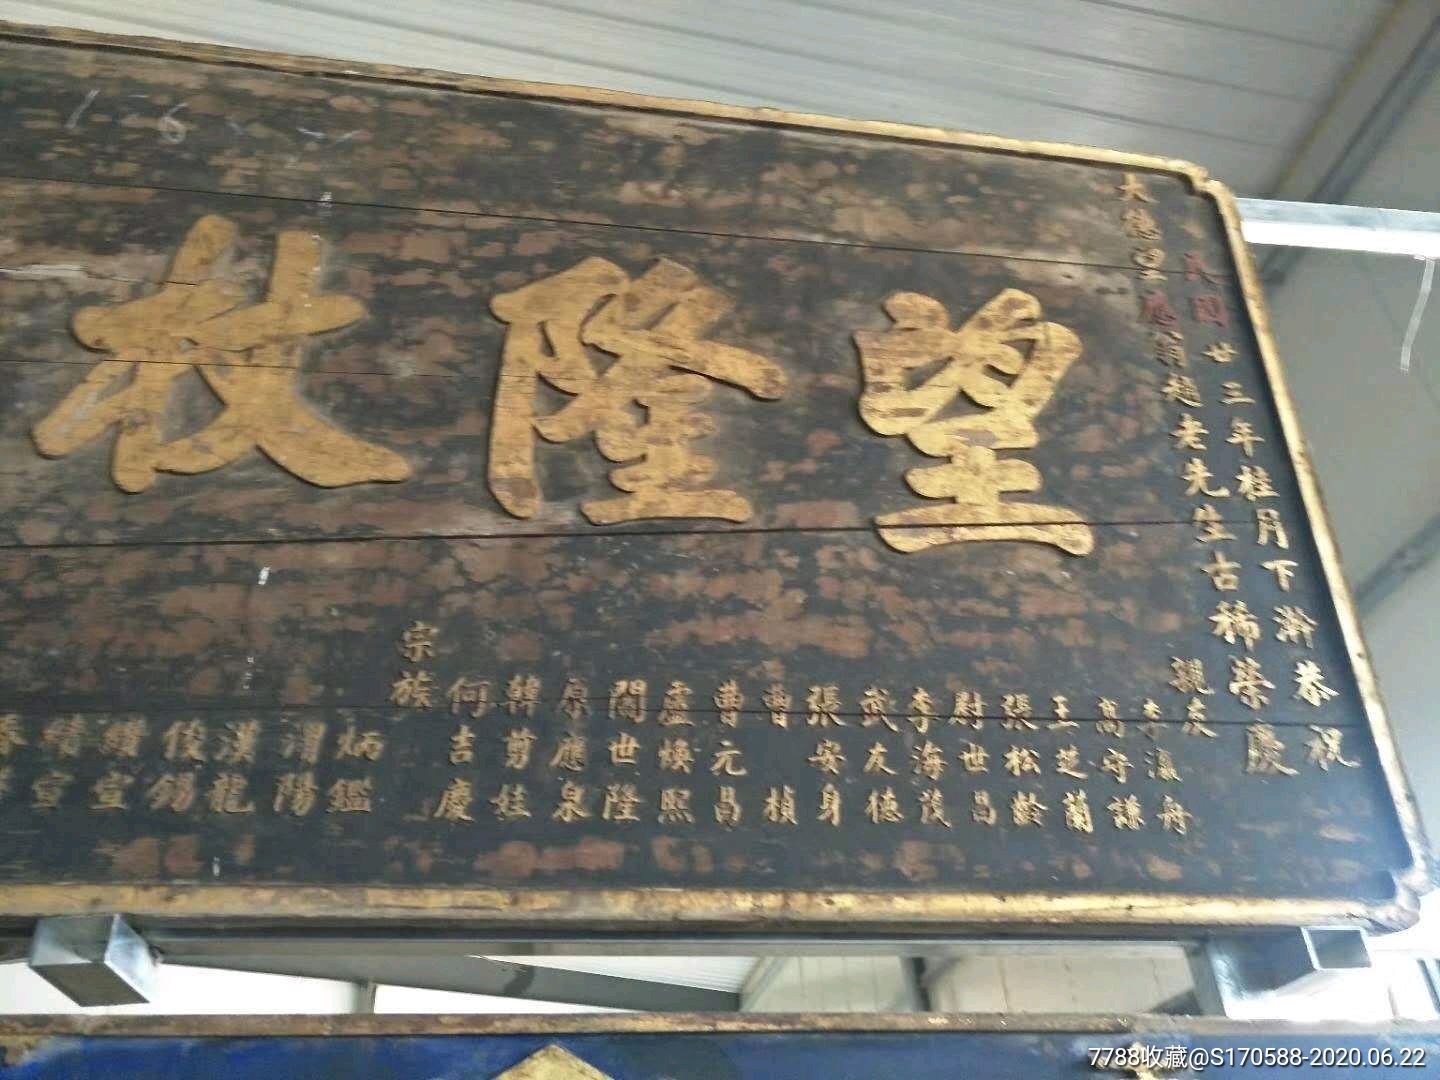 望隆杖
民国廿三年桂月下澣恭祝
大德望應翁趙老先生古稀榮慶
親友
李瀛舟
高守謙
王芝蘭
張松齡
尉世昌
李海茂
武友德
張安身
曹楨
曹元昌
盧煥熙
閻世隆
原應泉
韓剪娃
何吉慶
宗族
炳鑑
渭陽
漢龍
俊錫
纘宣
績宣
7788收藏@S170588-2020.06.22